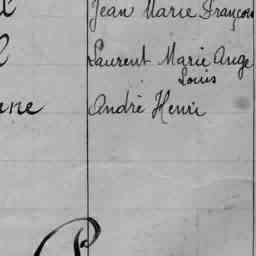 Jean Marie François
Laurent Marie Ange
Louis
ne André Henri
P